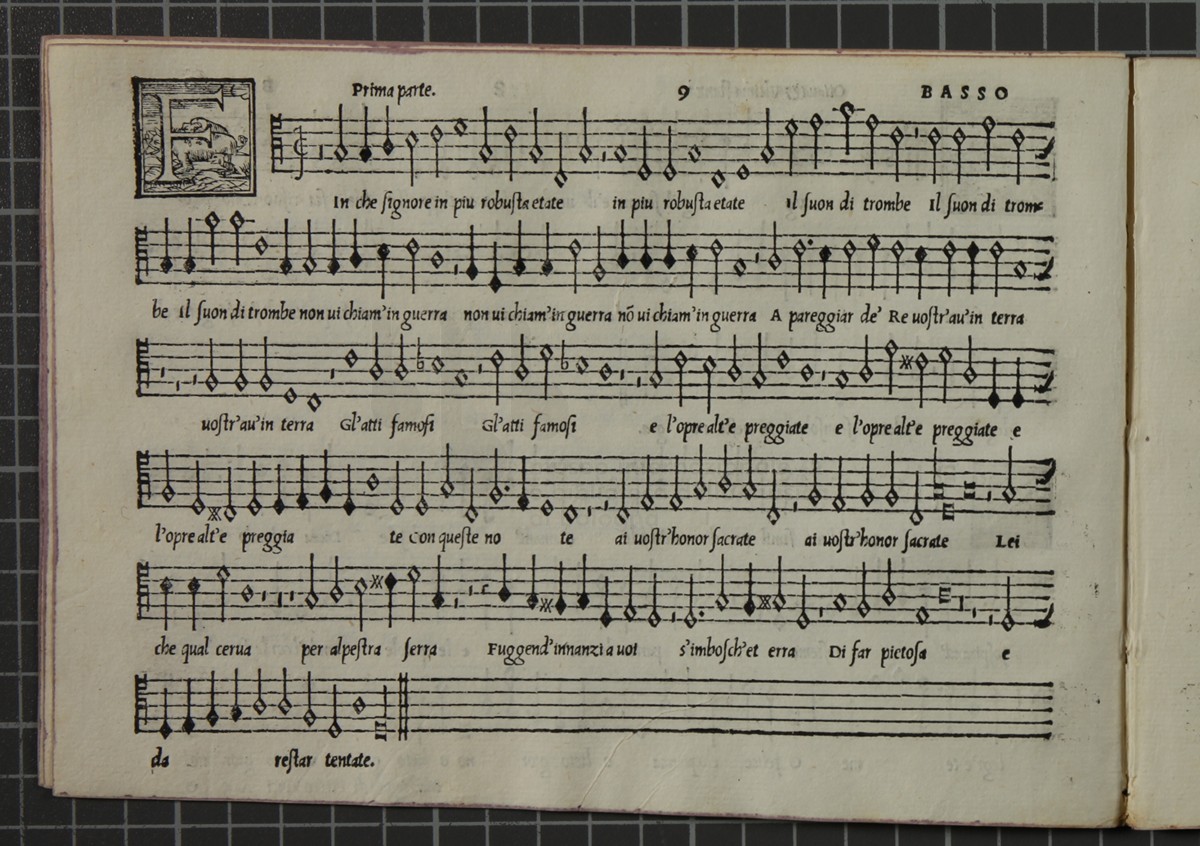 Prima parte. 9 BASSO
FIn che signore in piu robusta etate in piu robusta etate Il suon di trombe Il suon di trom=
be Il suon di trombe non ui chiam'in guerra non ui chiam'in guerra nō ui chiam'in guerra A pareggiar de' Re uostr'au'in terra
uostr'au'in terra Gl'atti famosi Gl'atti famosi e l'opre alt'e preggiate e l'opre alt'e preggiate e
l'opre alt'e preggia te Con queste no te ai uostr'honor sacrate ai uostr'honor sacrate Lei
che qual cerua per alpestra serra Fuggend'innanzi a uoi s'imbosch'et erra Di far pietosa e
da restar tentate.